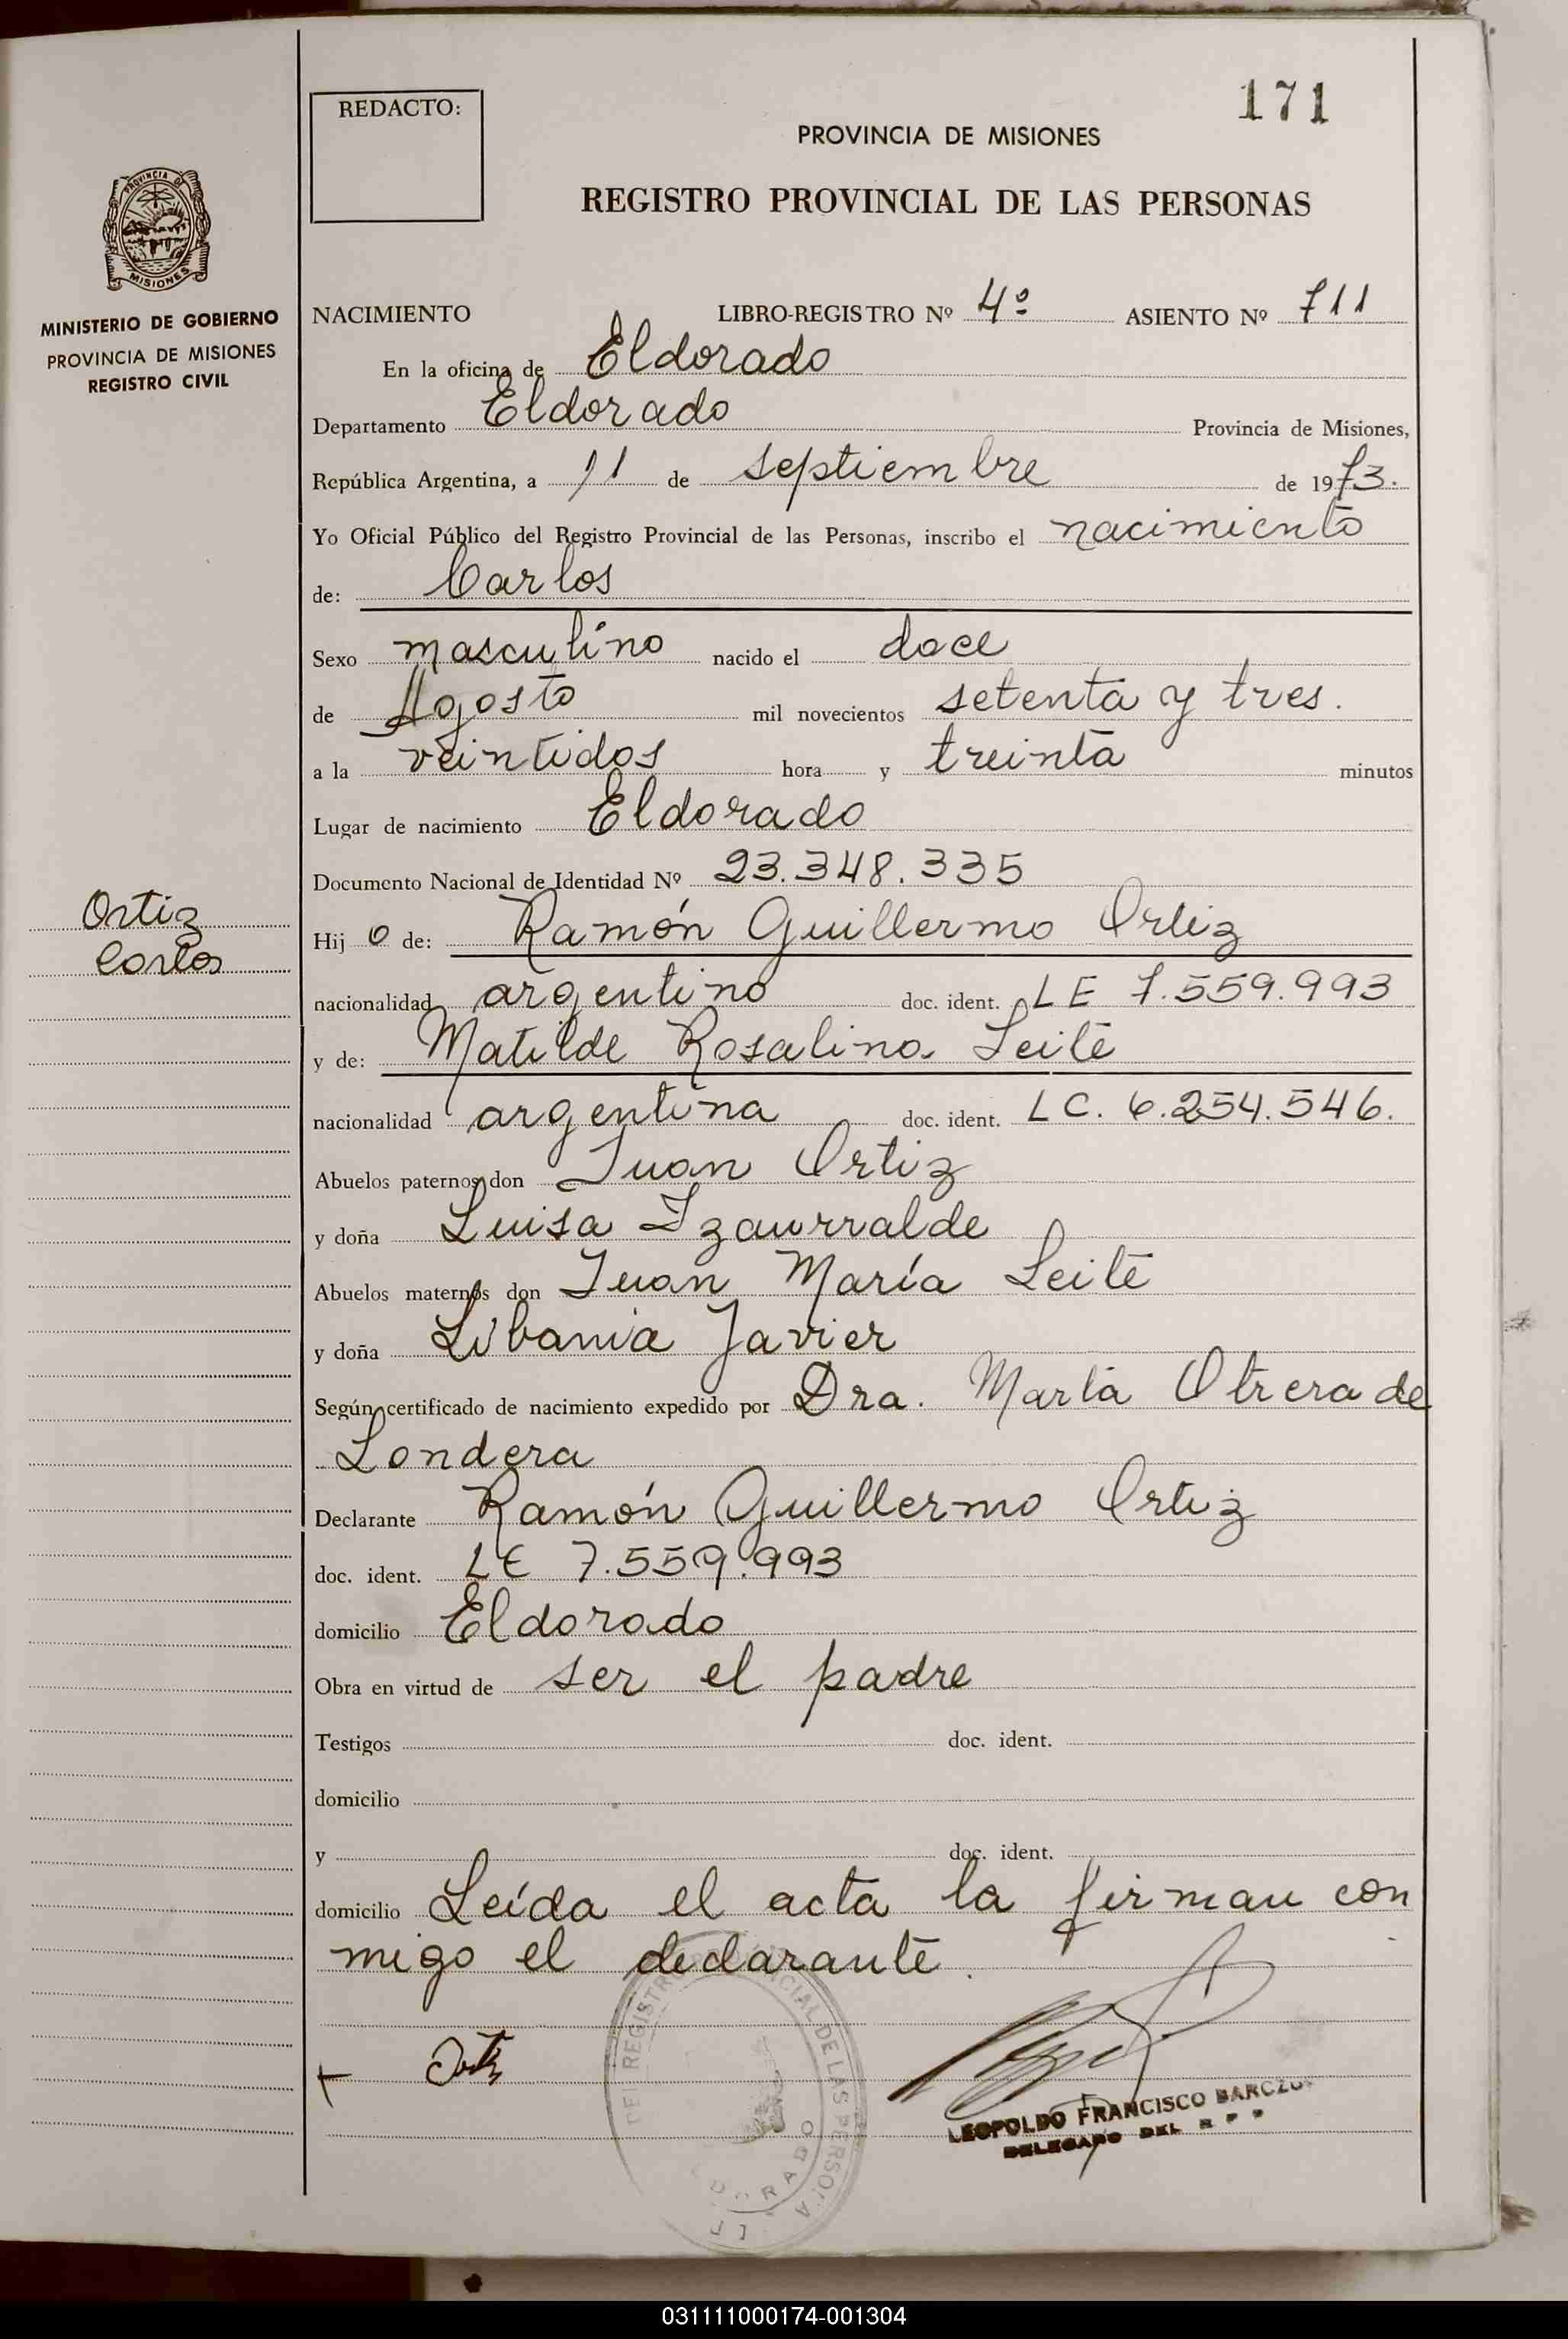 171
REDACTO:
PROVINCIA DE MISIONES
REGISTRO PROVINCIAL DE LAS PERSONAS
PROVINCIA DE
MISIONES
MINISTERIO DE GOBIERNO
PROVINCIA DE MISIONES
REGISTRO CIVIL
NACIMIENTO LIBRO-REGISTRO Nº 4º ASIENTO Nº 711
En la oficina de Eldorado
Departamento Eldorado Provincia de Misiones,
República Argentina, a 11 de septiembre de 1973.
Yo Oficial Público del Registro Provincial de las Personas, inscribo el nacimiento
de: Carlos
Sexo masculino nacido el doce
de Agosto mil novecientos setenta y tres.
a la veintidos hora y treinta minutos
Lugar de nacimiento Eldorado
Documento Nacional de Identidad Nº 23.348.335
Ortiz
Carlos
Hij o de: Ramón Guillermo Ortiz
nacionalidad argentino doc. ident. LE 7.559.993
y de: Matilde Rosalina Leite
nacionalidad argentina doc. ident. LC. 6.254.546.
Abuelos paternos don Juan Ortiz
y doña Luisa Izaurralde
Abuelos maternos don Juan María Leite
y doña Libania Javier
Según certificado de nacimiento expedido por Dra. Marta Otrera de
Londera
Declarante Ramón Guillermo Ortiz
doc. ident. LE 7.559.993
domicilio Eldorado
Obra en virtud de ser el padre
Testigos doc. ident.
domicilio
y doc. ident.
domicilio Leída el acta la firman con
migo el declarante.
DEL REGISTRO PROVINCIAL DE LAS PERSONAS
LEOPOLDO FRANCISCO
DELEGADO DEL R P P
031111000174-001304